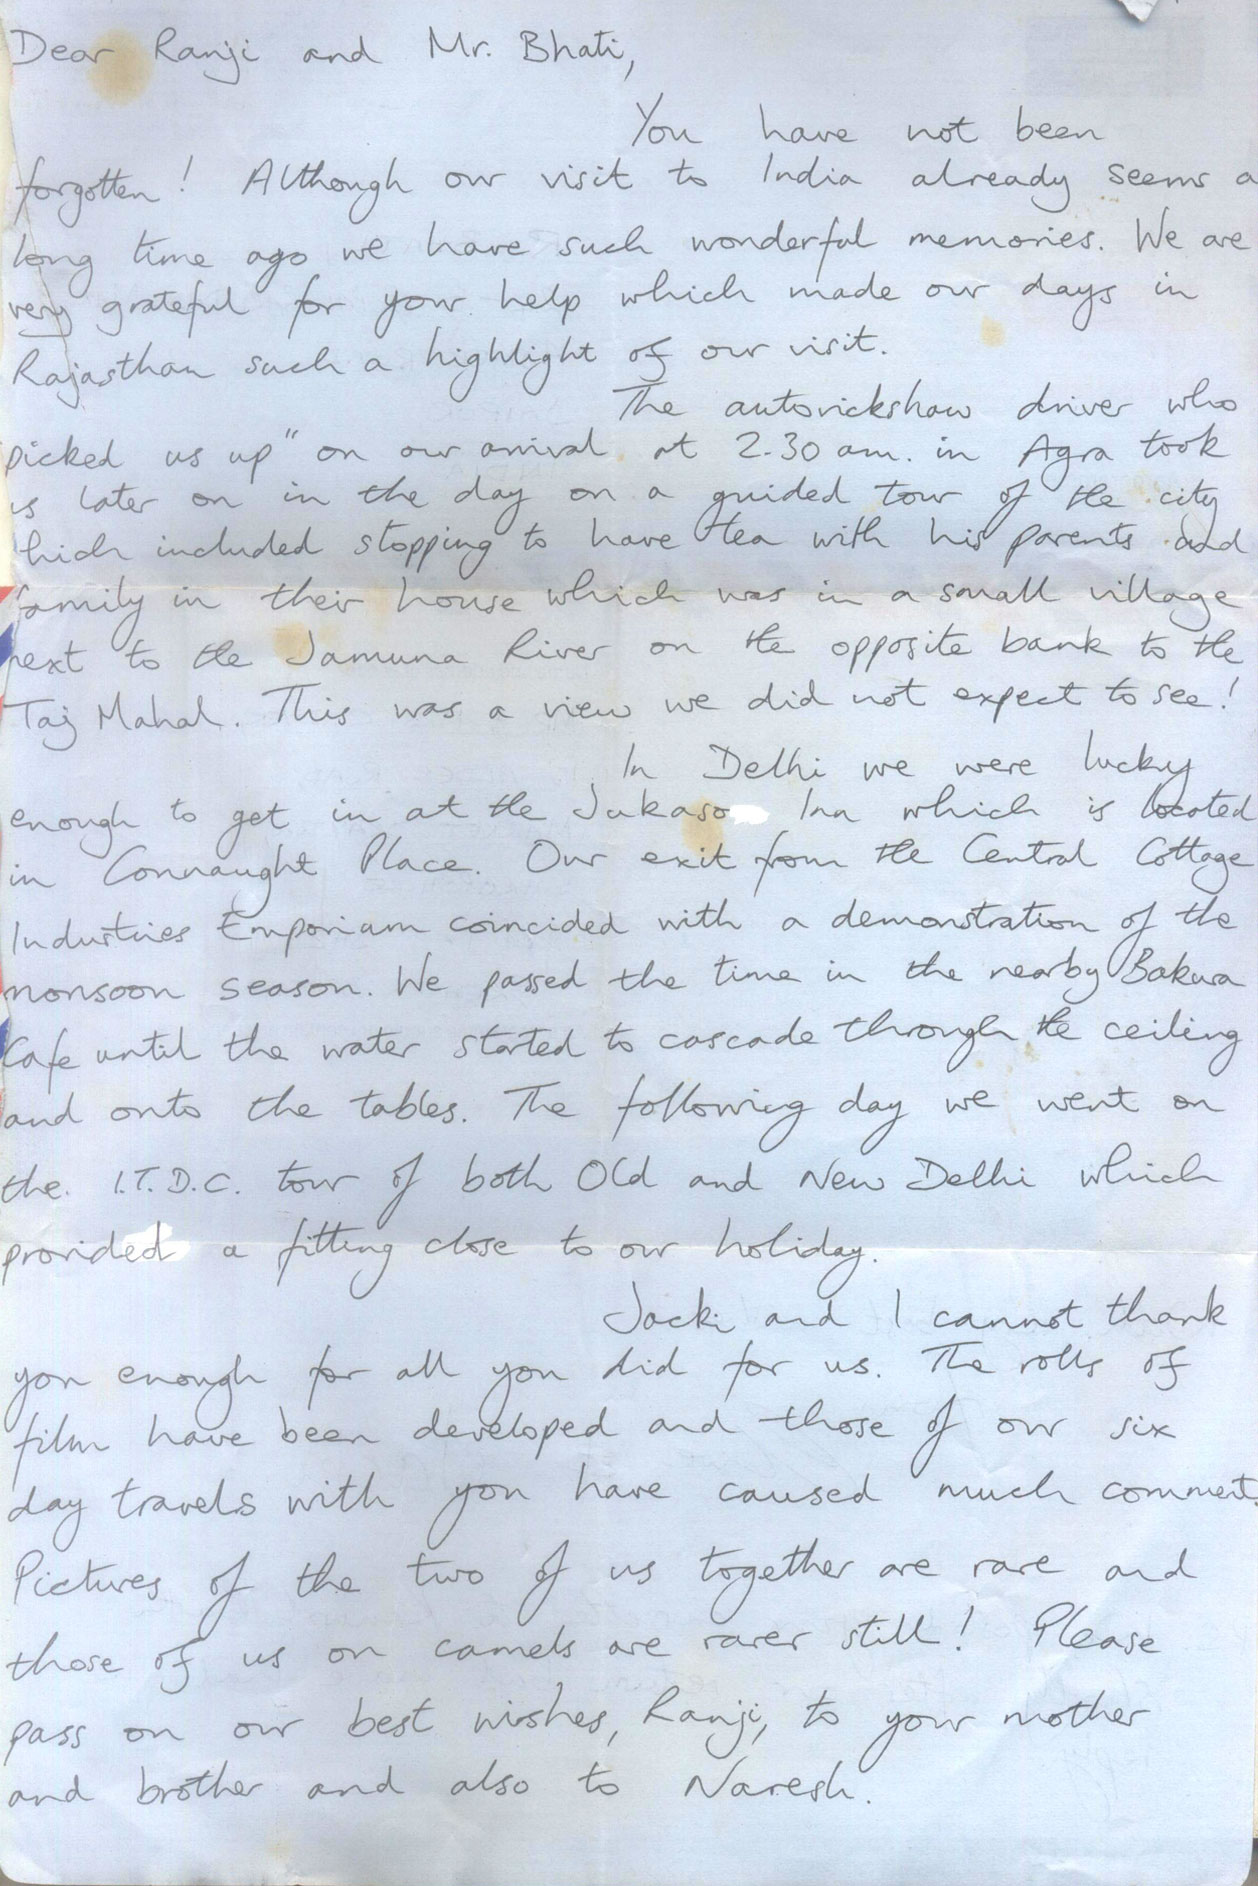 Dear Ranji and Mr. Bhati,
You have not been
forgotten! Although our visit to India already seems a
long time ago we have such wonderful memories. We are
very grateful for your help which made our days in
Rajasthan such a highlight of our visit.
The autorickshaw driver who
picked us up" on our arrival at 2.30 am. in Agra took
us later on in the day on a guided tour of the city
which included stopping to have tea with his parents and
family in their house which was in a small village
next to the Jamuna River on the opposite bank to the
Taj Mahal. This was a view we did not expect to see!
In Delhi we were lucky
enough to get in at the Jukaso Inn which is located
in Connaught Place. Our exit from the Central Cottage
Industries Emporium coincided with a demonstration of the
monsoon season. We passed the time in the nearby Bakura
Cafe until the water started to cascade through the ceiling
and onto the tables. The following day we went on
the. I.T.D.C. tour of both Old and New Delhi which
provided a fitting close to our holiday.
Jacki and I cannot thank
you enough for all you did for us. The rolls of
film have been developed and those of our six
day travels with you have caused much comment.
Pictures of the two of us together are rare and
those of us on camels are rarer still! Please
pass on our best wishes, Ranji, to your mother
and brother and also to Naresh.